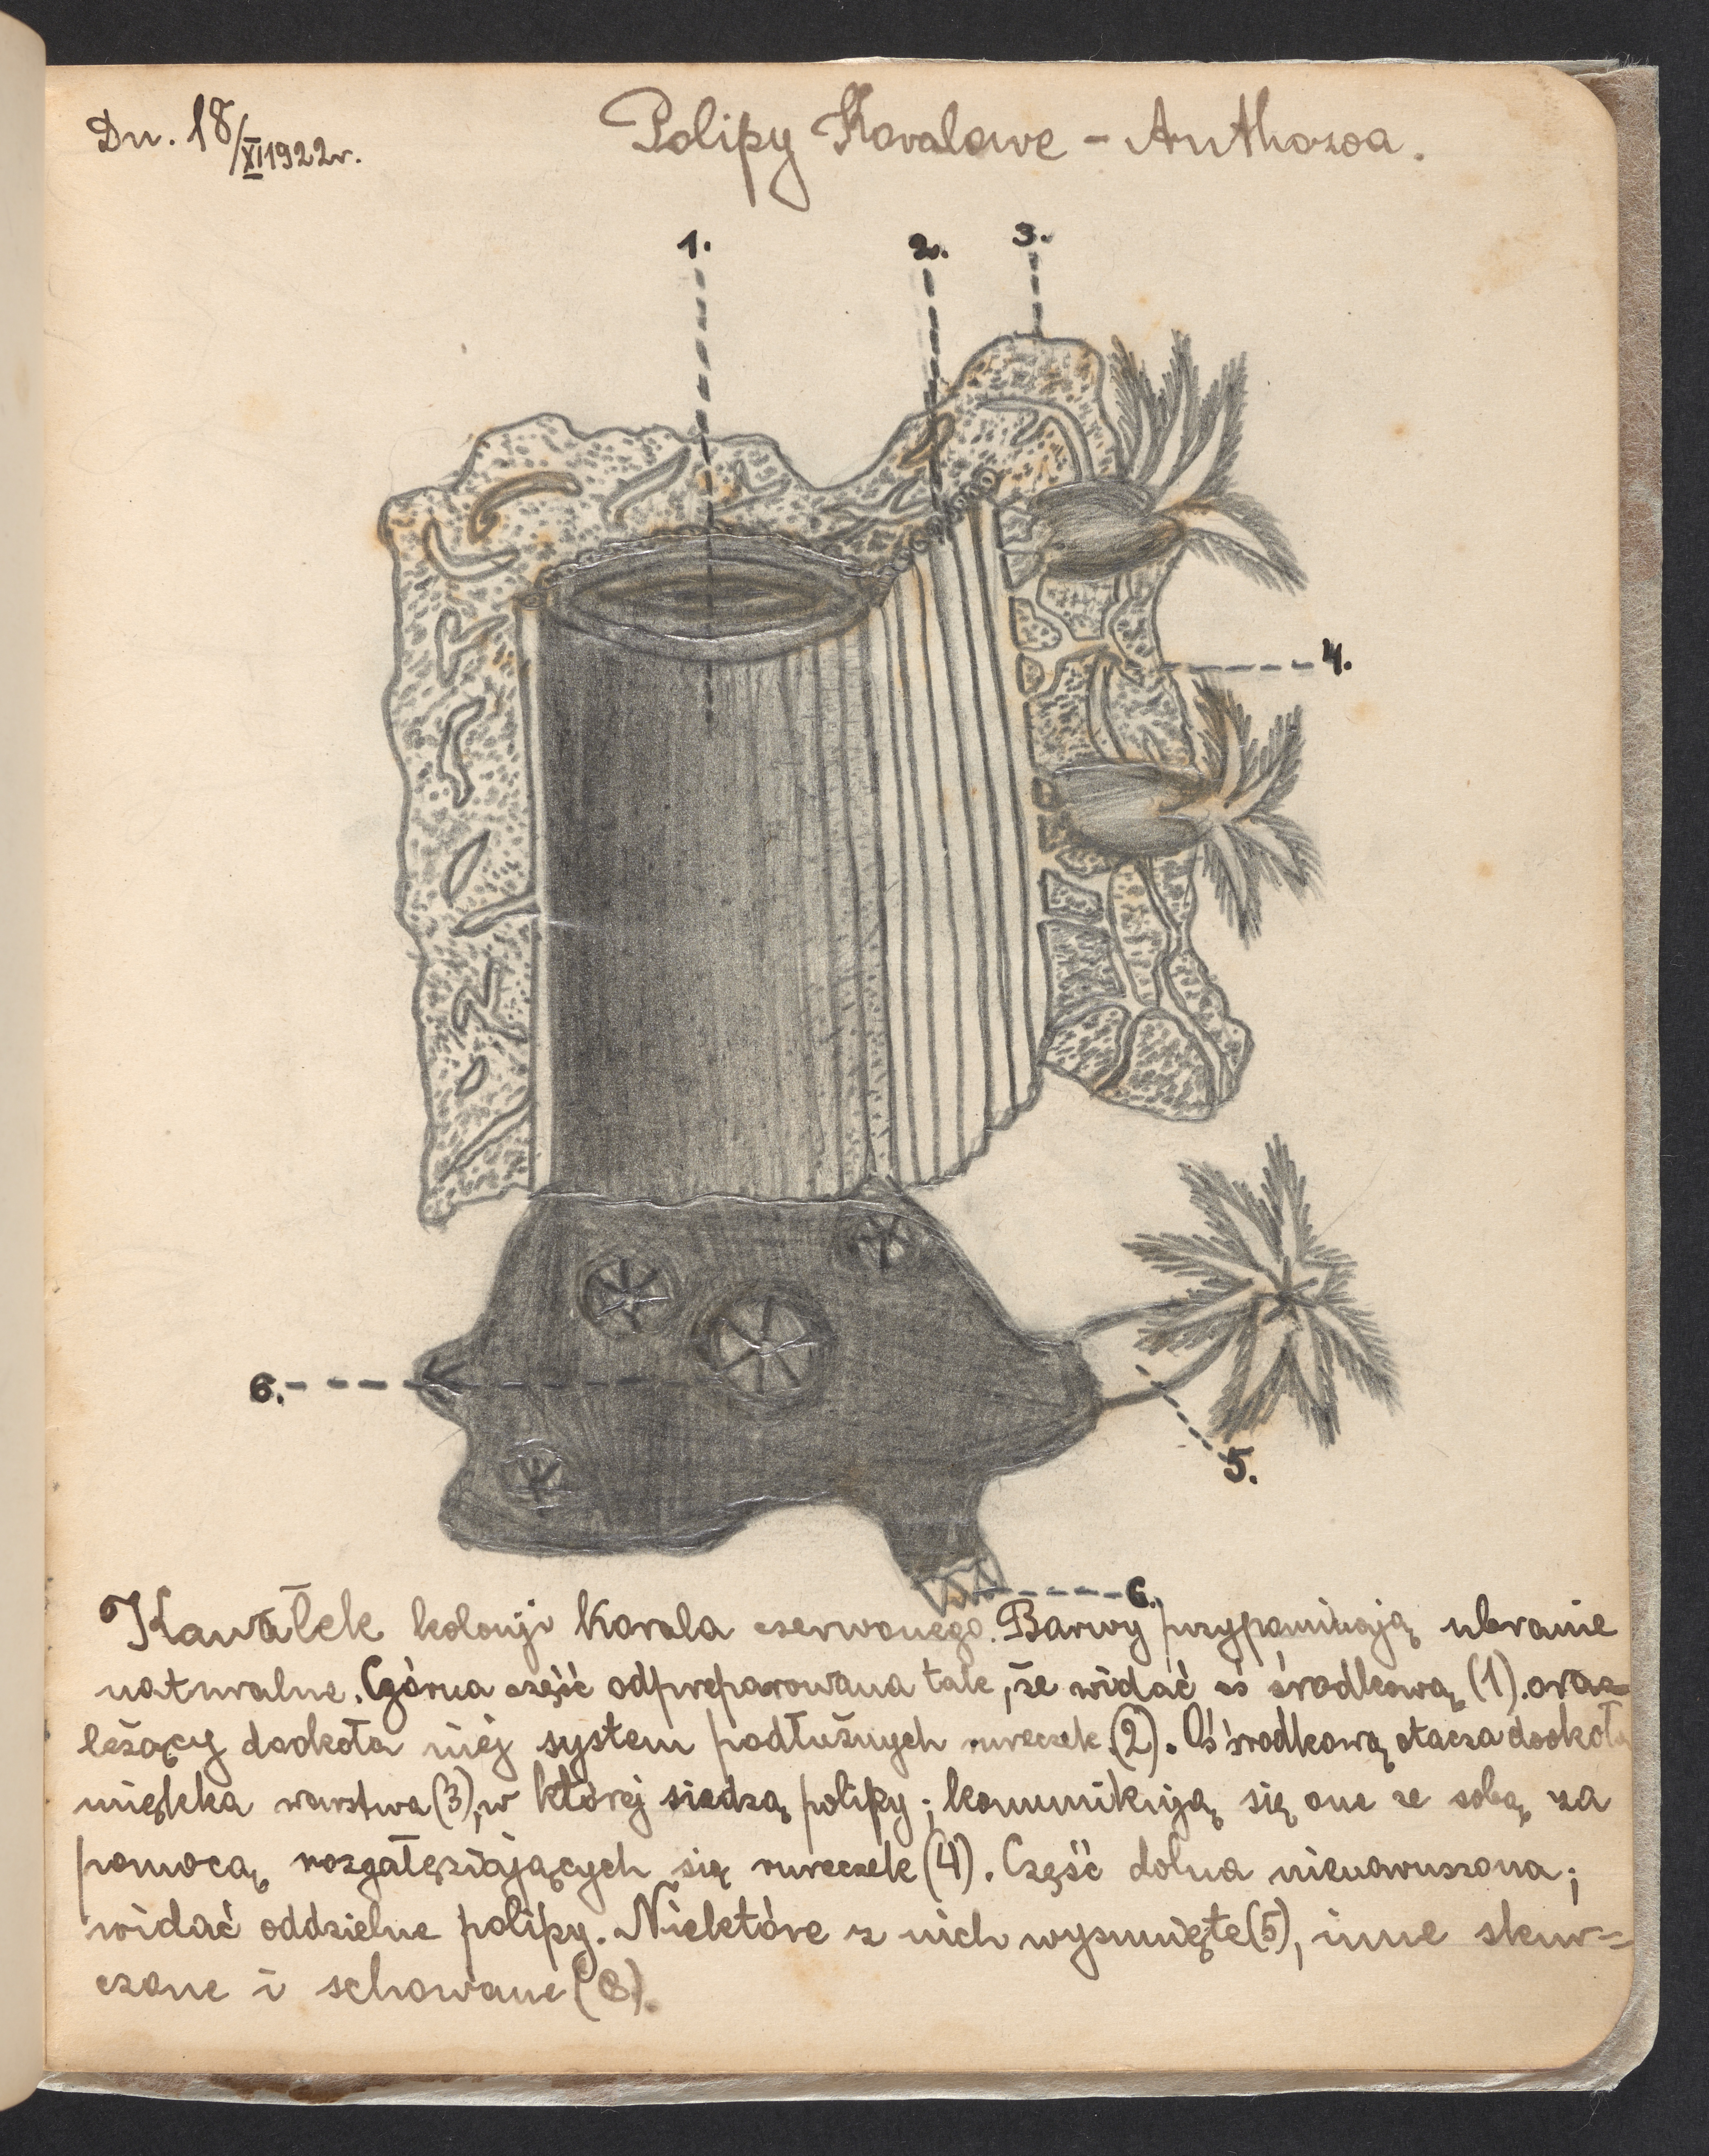 Dn. 18/XI 1922r.
Polipy Koralowe - Anthozoa.
1.
2.
3.
4.
6.
5.
6.
Kawałek kolonji Korala czerwonego. Barwy przypominają ubranie
naturalne. Górna część odpreparowana tak, że widać oś środkową (1). oraz
leżący dookoła niej system podłużnych rureczek (2). Oś środkową otacza dookoła
miękka warstwa (3), w której siedzą polipy; komunikują się one ze sobą za
pomocą rozgałęziających się rureczek (4). Część dolna nienaruszona;
widać oddzielne polipy. Niektóre z nich wysunięte (5), inne skur=
czone i schowane (6).